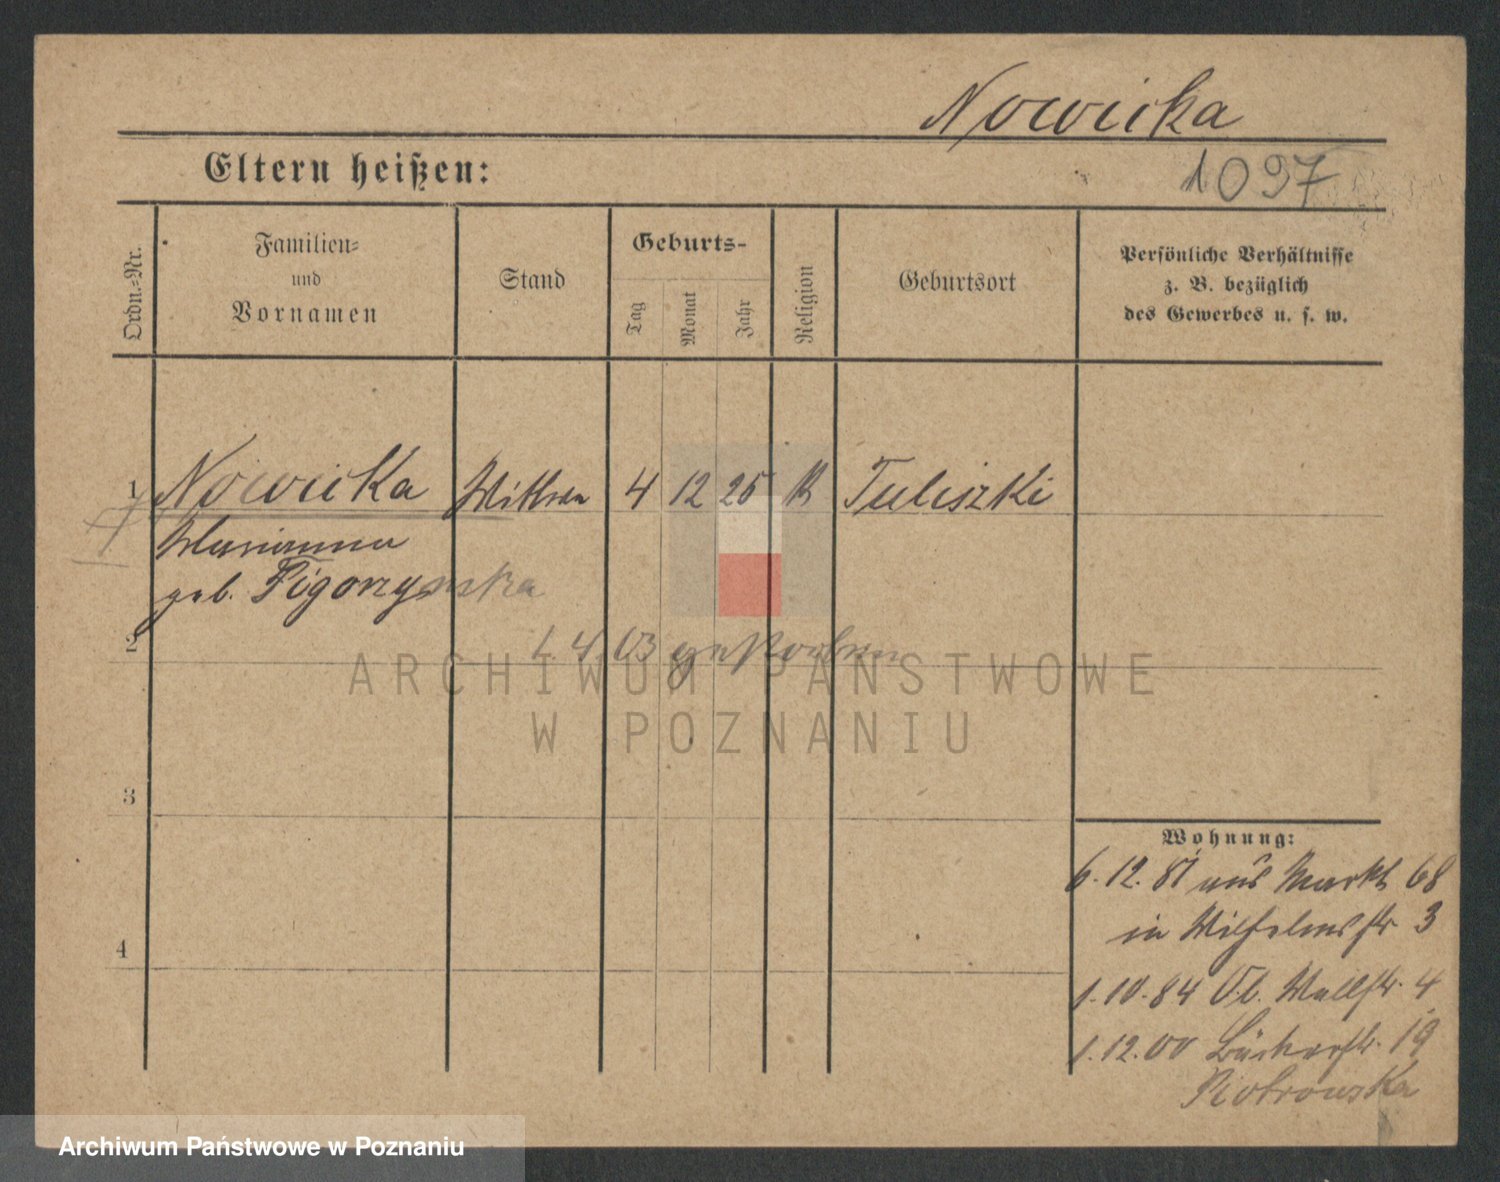 Nowicka
1097
Eltern heißen:
Ordn.-Nr.
Familien-
und
Vornamen
Stand
Geburts-
Tag
Monat
Jahr
Religion
Geburtsort
Persönliche Verhältnisse
z. B. bezüglich
des Gewerbes u. s. w.
1 Nowicka Wittwe 4 12 25 K Tuliszki
Marianna
geb. Figorzynska
2
1. 4. 03 gestorben
3
Wohnung:
6. 12. 81 aus Markt 68
in Wilhelmsstr 3
4
1. 10. 84 Ob. Wallstr. 4
1. 12. 00 Bäckerstr. 19
Piotrowska
ARCHIWUM PAŃSTWOWE
W POZNANIU
Archiwum Państwowe w Poznaniu